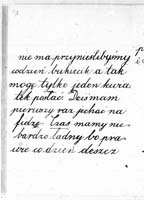 nie ma przynieślibyśmy
codzień bukiecik a tak
mogę tylko jeden kwia
tek posłać Dziś mam
pierwszy raz pchać na
Czas mamy nie
bardzo ładny bo pra
wie co dzień deszcz